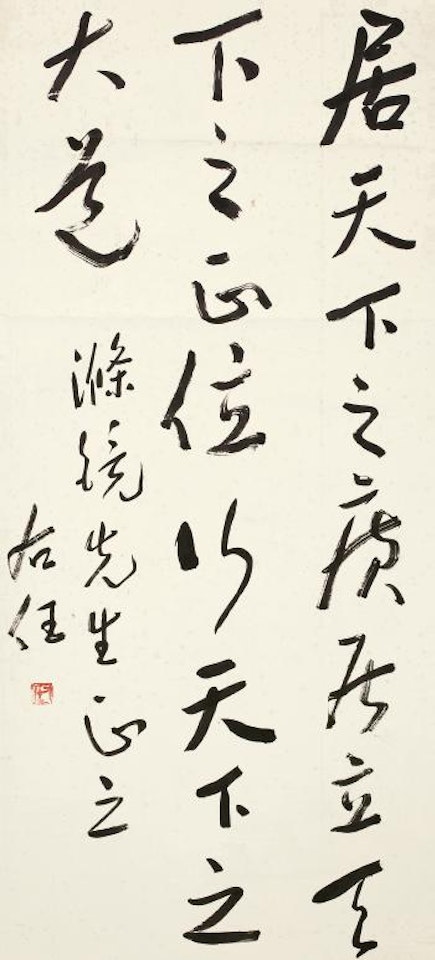 居天下之廣居立天
下之正位行天下之
大道
滌鏡先生正之
右任